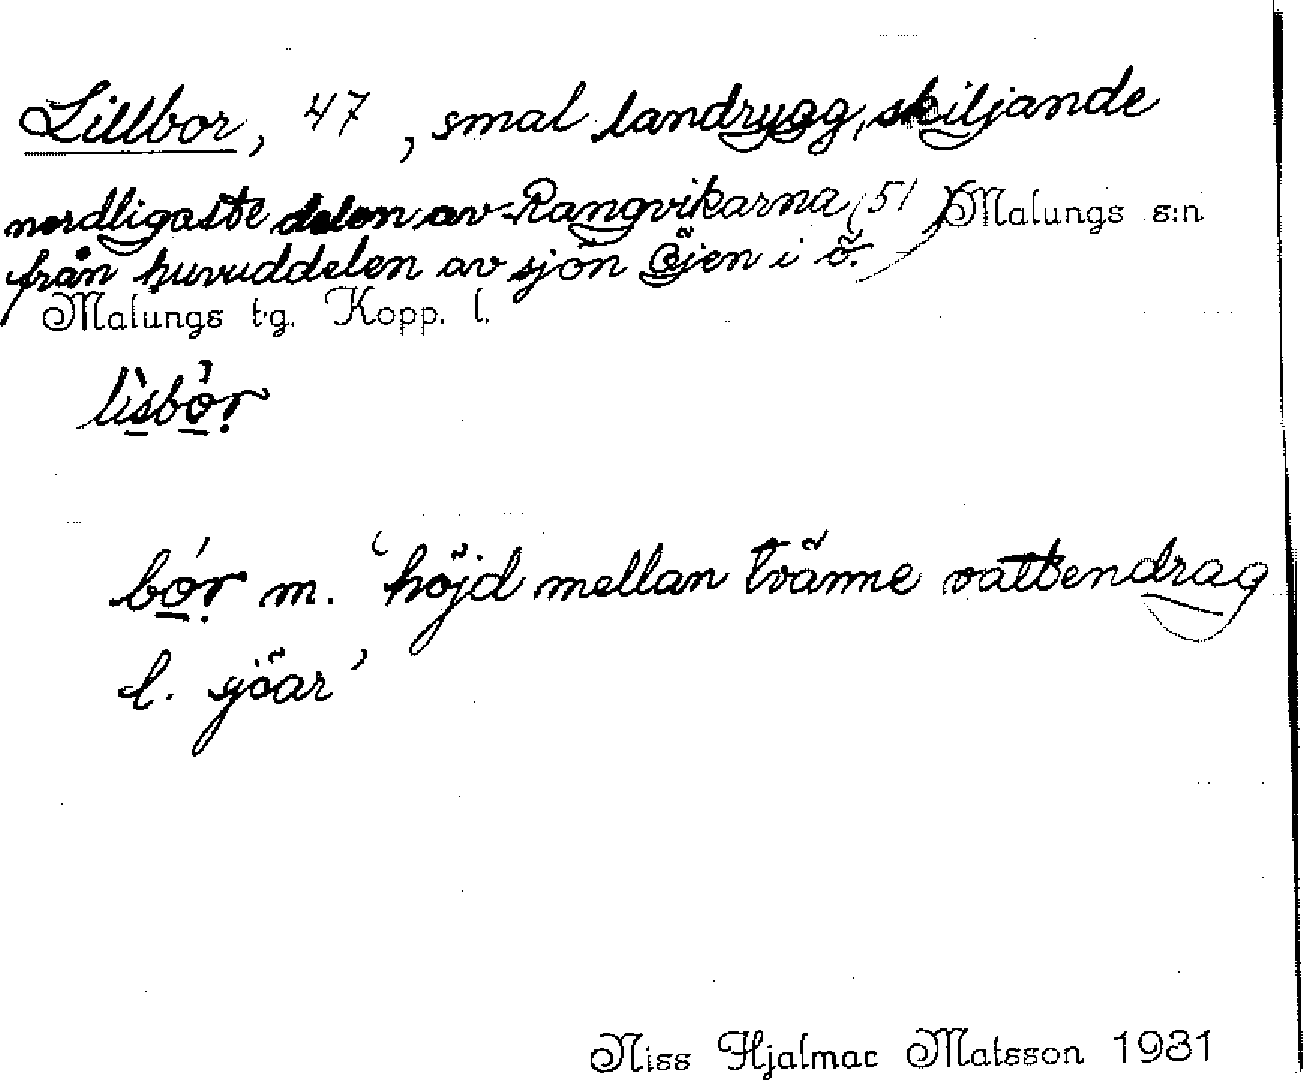 Lillbor, 47, smal landrygg, skiljande
nordligaste delen av Rangvikarna (51) Malungs s:n
från huvuddelen av sjön Öjen i ö.
Malungs tg. Kopp. l.
lìsbòr
bór m. ‘höjd mellan tvänne vattendrag
l. sjöar’
Niss Hjalmar Matsson 1931